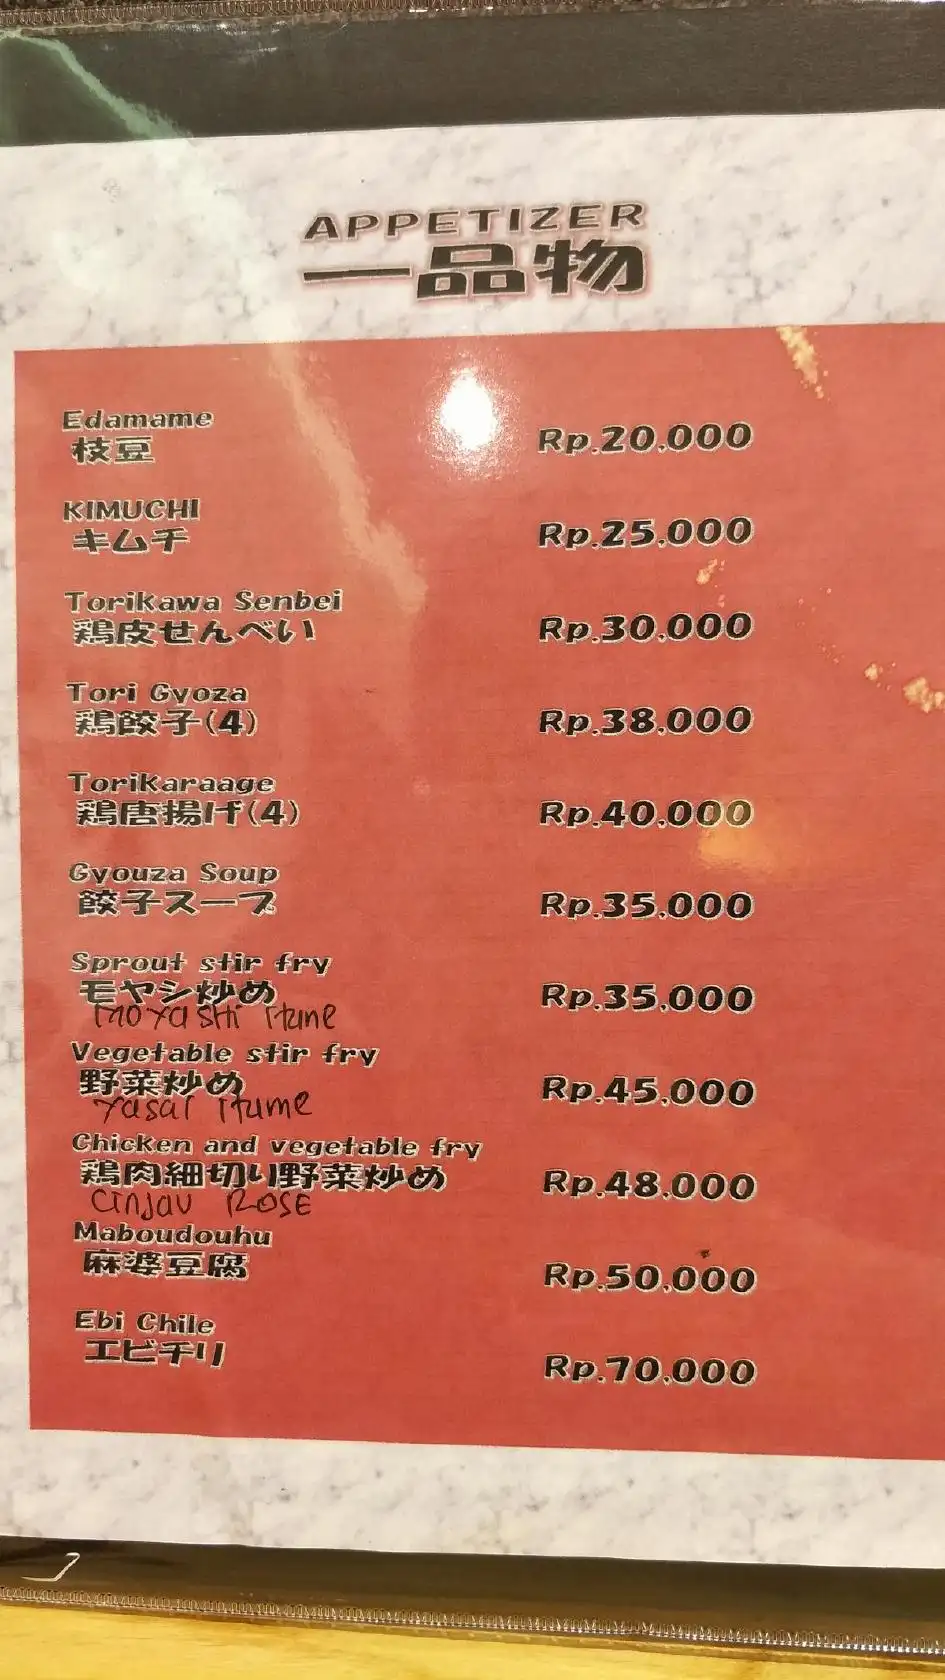 APPETIZER
一品物
Edamame
枝豆
Rp.20.000
KIMUCHI
キムチ
Rp.25.000
Torikawa Senbei
鶏皮せんべい
Rp.30.000
Tori Gyoza
鶏餃子(4)
Rp.38.000
Torikaraage
鶏唐揚げ(4)
Rp.40.000
Gyouza Soup
餃子スープ
Rp.35.000
Sprout stir fry
モヤシ炒め
Moyashi
Rp.35.000
Vegetable stir fry
野菜炒め
Yasai itume
Rp.45.000
Chicken and vegetable fry
鶏肉細切り野菜炒め
CINJAU ROSE
Rp.48.000
Maboudouhu
麻婆豆腐
Rp.50.000
Ebi Chile
エビチリ
Rp.70.000